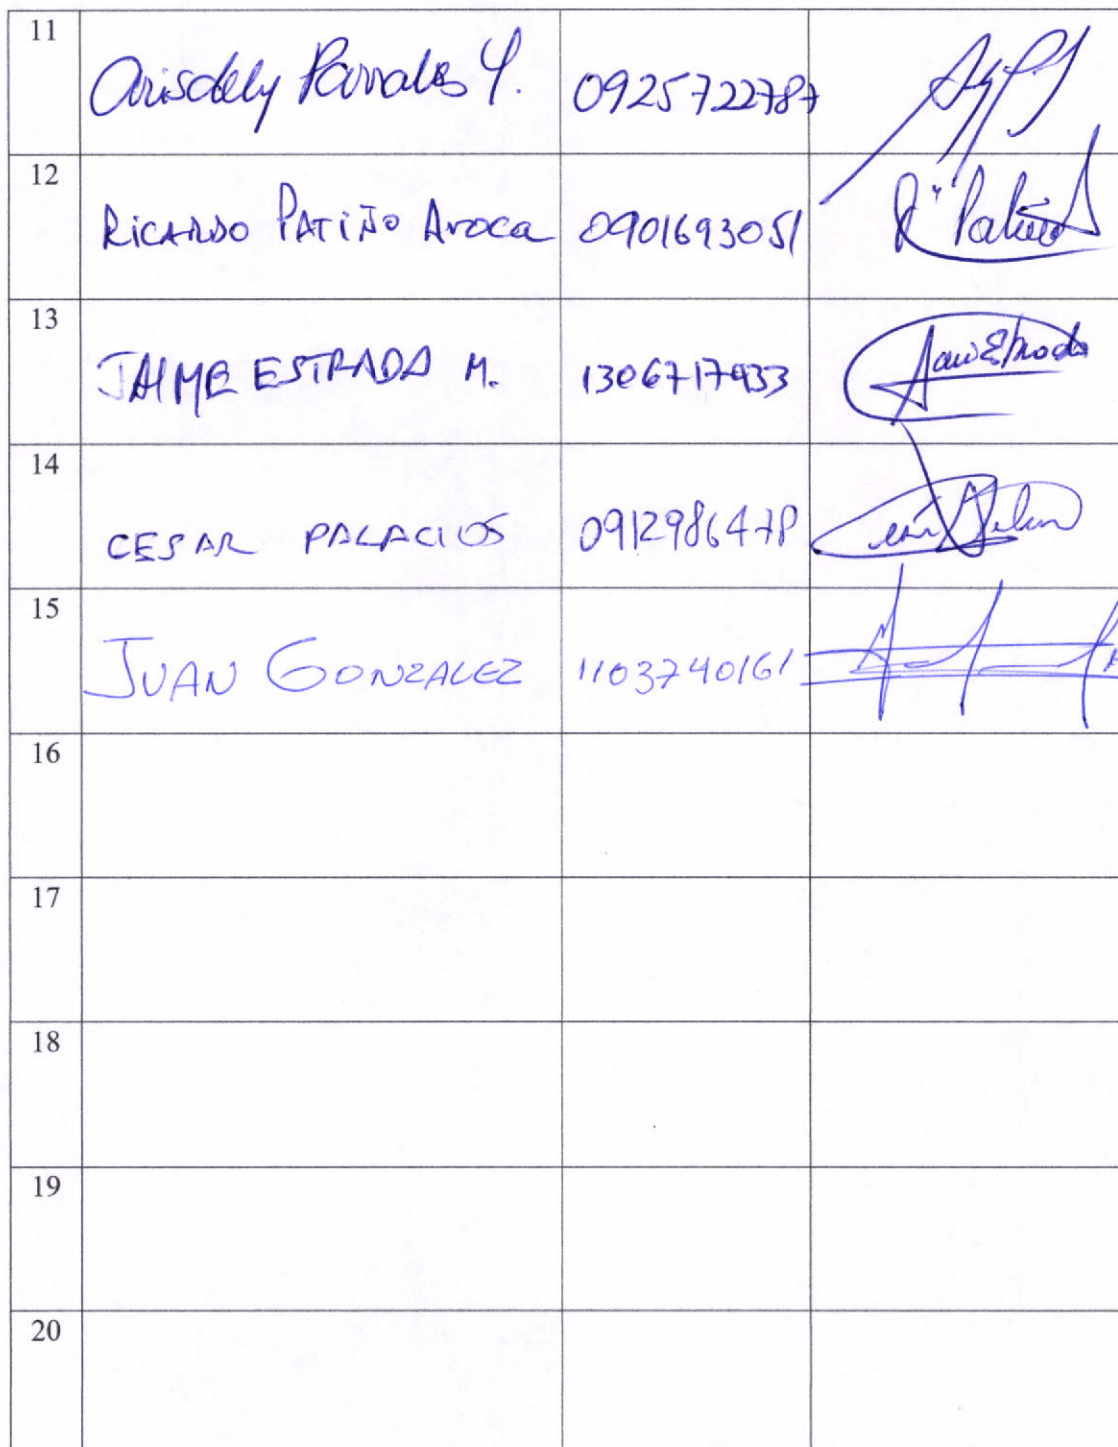 11 Arisdely Parrales Y. 0925722787
12 RICARDO PATIÑO Aroca 0901693051 R Patiño
13 JAIME ESTRADA M. 1306717933
14 CESAR PALACIOS 0912986478
15 JUAN GONZALEZ 1103740161
16
17
18
19
20